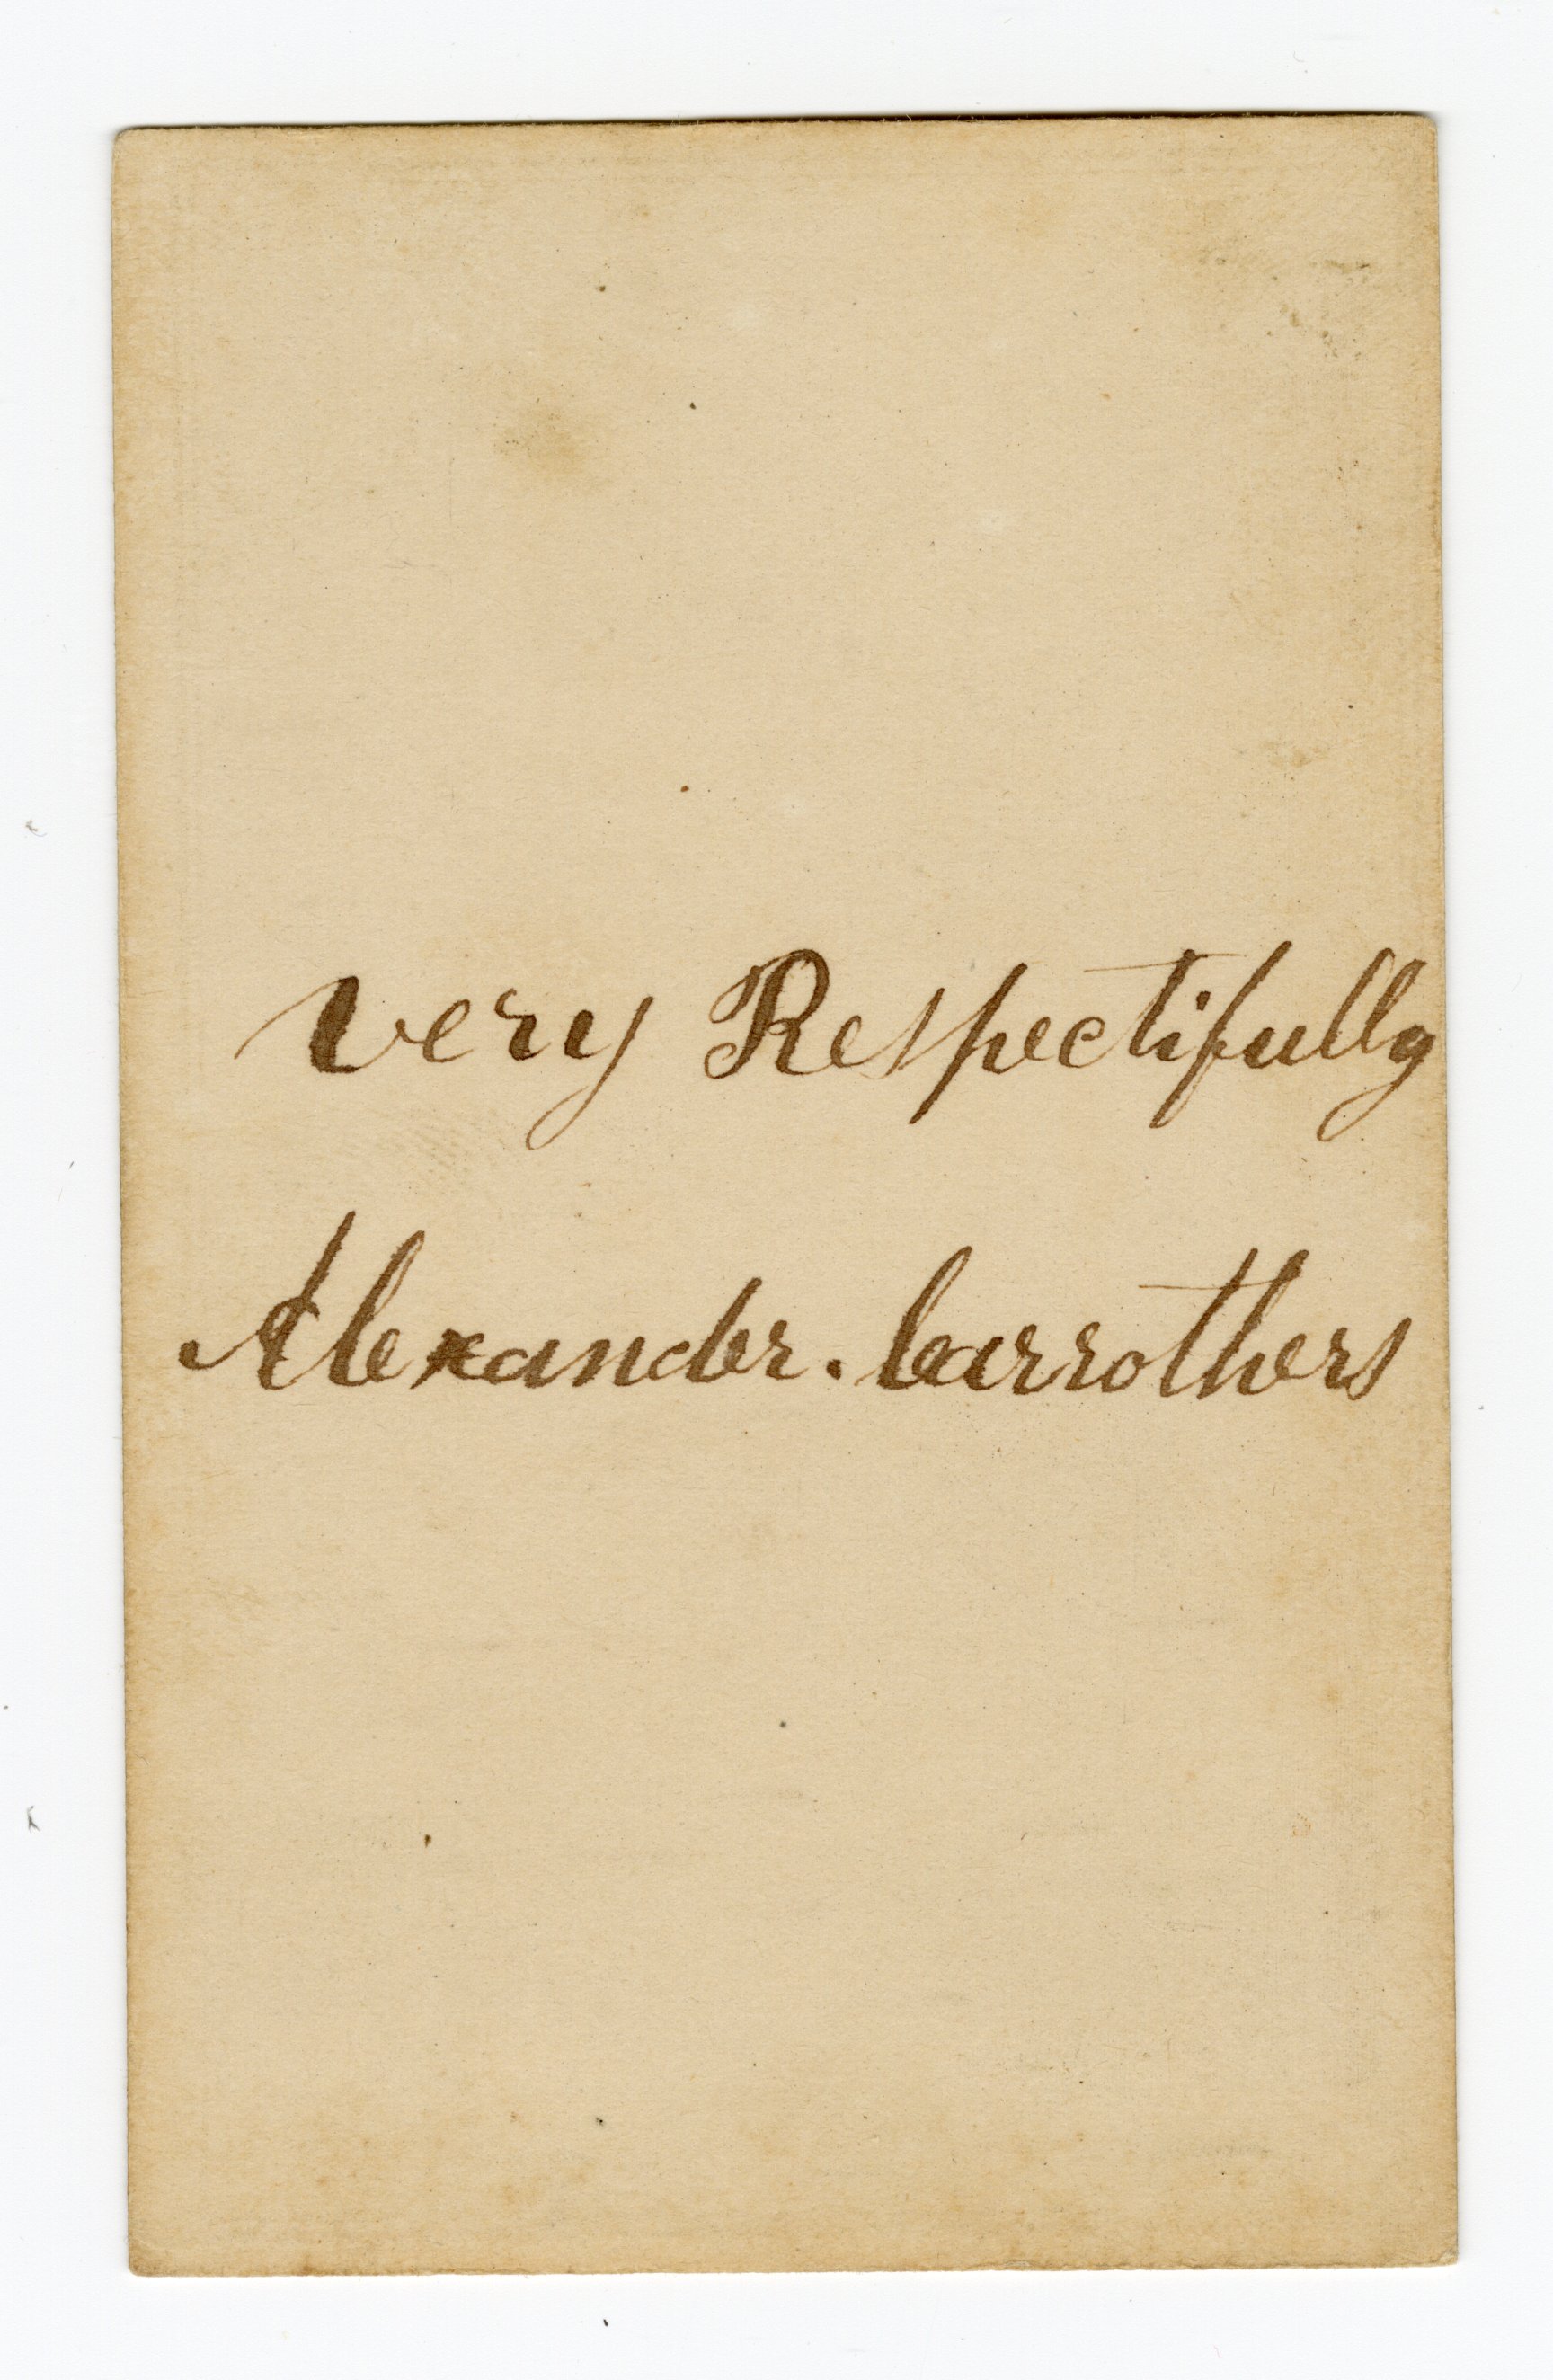 very Respectifully
Alexander. Carrothers